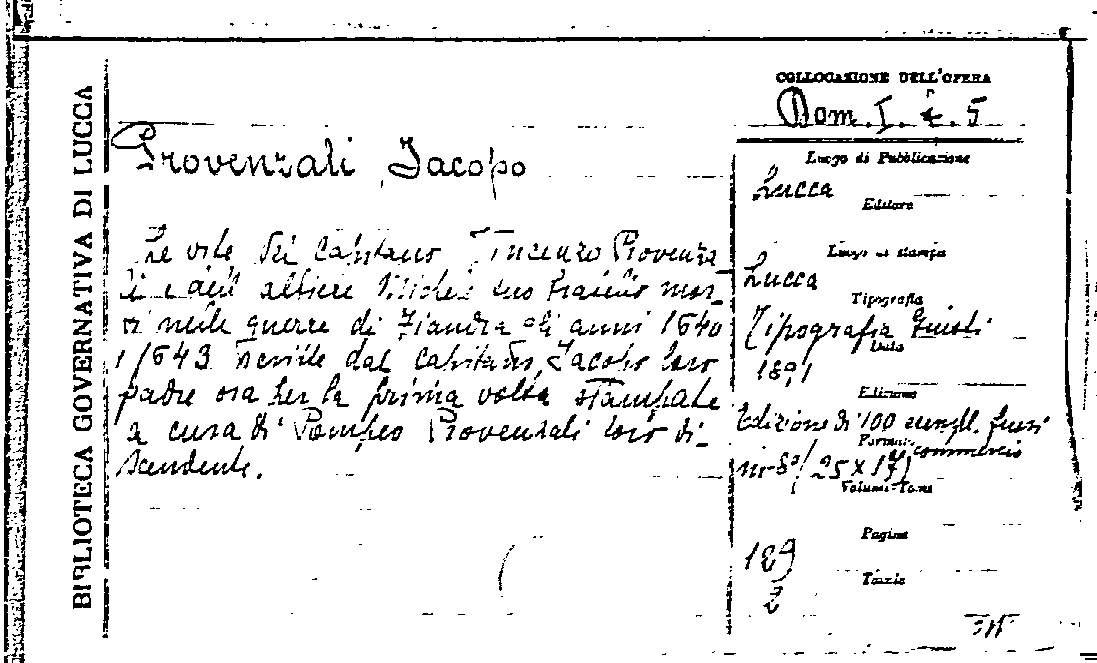 BIBLIOTECA GOVERNATIVA DI LUCCA
COLLOCAZIONE DELL'OPERA
Dom. I. 4. 5
Provenzali Jacopo
Le vite del Capitano Vincenzo Provenza
li e dell' alfiere Michele suo fratello mor-
ti nelle guerre di Fiandra gli anni 1640
1643 scritte dal capitano Jacopo loro
padre ora per la prima volta stampate
a cura di Pompeo Provenzali loro di-
scendente.
Luogo di Pubblicazione
Lucca
Editore
Luogo di stampa
Lucca
Tipografia
Tipografia Giusti
Data
1891
Edizione
Edizione di 100 esempl. fuori
commercio
Formato
in-8°/25 x 17)
Volumi-Tomi
Pagine
189
Tavole
2